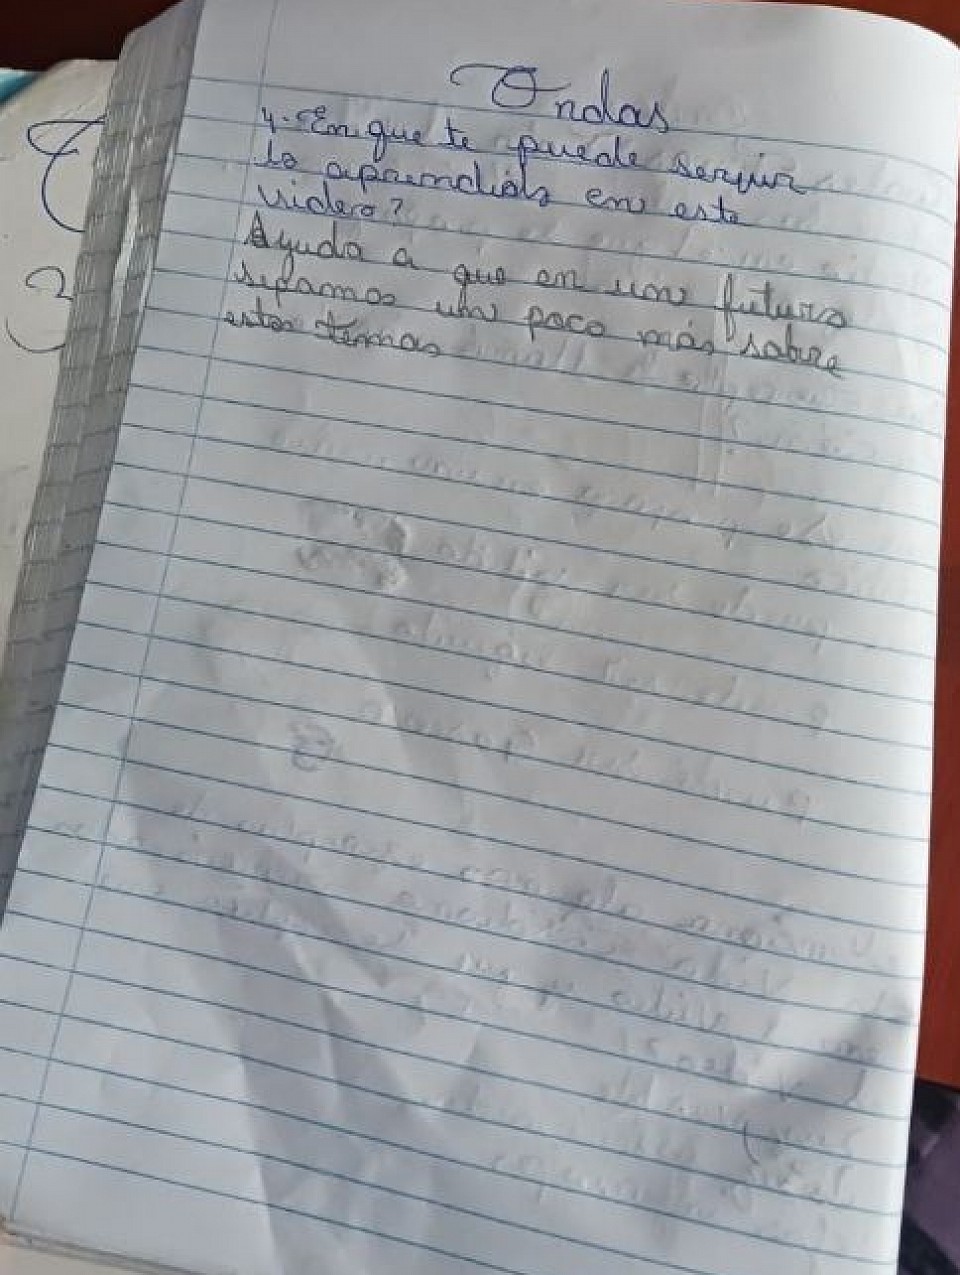 Ondas
4.- En que te puede servir
lo aprendido en este
video?
Ayuda a que en un futuro
sepamos un poco más sobre
estos temas